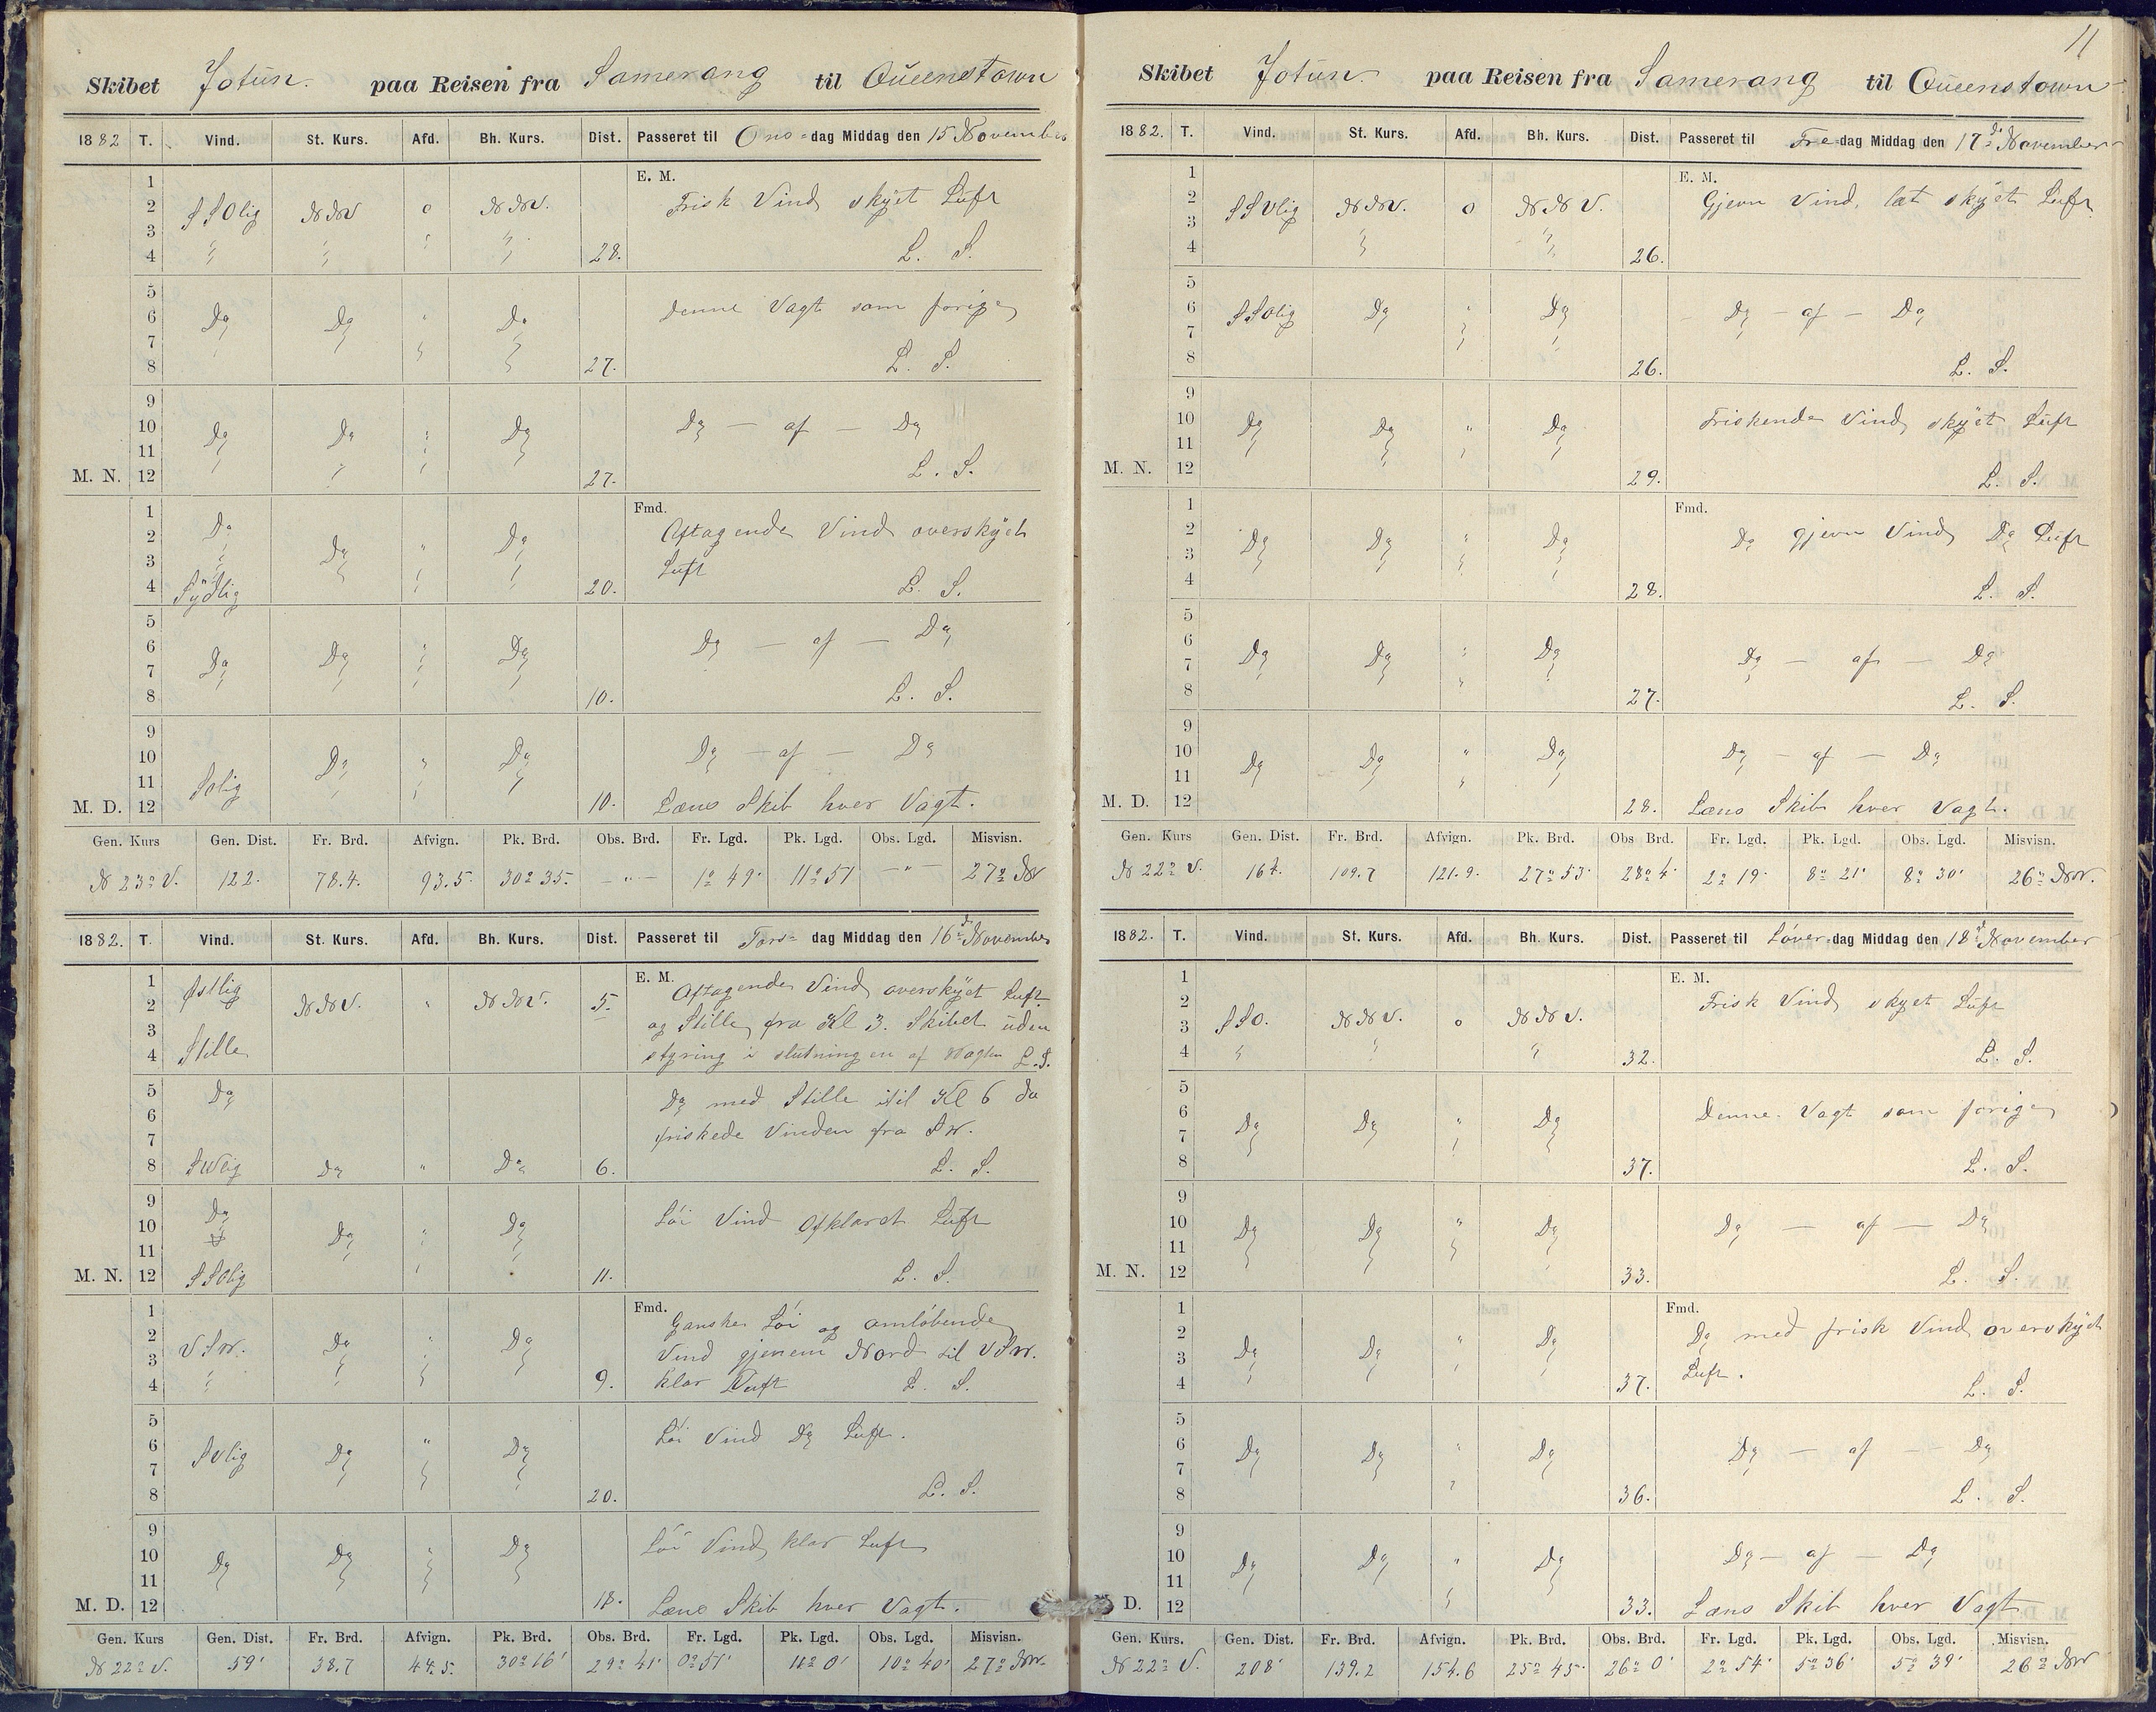 Skibet Jotun. paa Reisen fra Samerang til Queenstown
1882 T. Vind. St. Kurs. Afd. Bh. Kurs. Dist. Passeret til Ons-dag Middag den 15 November
1
2 SSOlig NNV o NNV. E. M. Frisk Vind skyet Luft
3
4 " " " " 28. L. S.
5
6 Do Do " Do Denne Vagt som forige
7
8 27. L. S.
9
10 Do Do " Do Do — af — Do
11
M. N. 12 27. L. S.
1 Fmd.
2 Do Do " Do Aftagende Vind overskyet
3 Luft
4 Sydlig 20. L. S.
5
6 Do Do " Do Do — af — Do
7
8 10. L. S.
9
10 Do " Do Do — af — Do
11 SOlig
M. D. 12 10. Læns Skib hver Vagt.
Gen. Kurs Gen. Dist. Fr. Brd. Afvign. Pk. Brd. Obs. Brd. Fr. Lgd. Pk. Lgd. Obs. Lgd. Misvisn.
N 23° V. 122. 78.4. 93.5. 30° 35. — " — 1° 49' 11° 51 — " — 27° NW
1882. T. Vind. St. Kurs. Afd. Bh. Kurs. Dist. Passeret til Tors- dag Middag den 16de November
1 Østlig E. M. Aftagende Vind overskyet Luft
2 NNV. " NNV. 5. og Stille fra Kl 3. Skibet uden
3
4 Stille styring i slutningen af Vagten L. S.
5 Do Do med Stille til Kl 6 da
6 friskede Vinden fra SW.
7
8 SWlig Do " Do 6. L. S.
9 Do
10 Do " Do Løi Vind Opklaret Luft
11
M. N. 12 SSOlig 11. L. S.
1 Fmd. Ganske Løi og omløbende
2 VSW. Do " Do Vind gjenem Nord til VSW.
3
4 " 9. klar Luft L. S.
5
6 SVlig Do " Do Løi Vind Do Luft.
7
8 20. L. S.
9
10 Do Do " Do Løi Vind klar Luft
11
M. D. 12 18. Læns Skib hver Vagt.
Gen. Kurs Gen. Dist. Fr. Brd. Afvign. Pk. Brd. Obs. Brd. Fr. Lgd. Pk. Lgd. Obs. Lgd. Misvisn.
N 22° V. 59' 38.7 44.5. 30° 16' 29° 41' 0° 51' 11° 0' 10° 40' 27° NW.
11
Skibet Jotun. paa Reisen fra Samerang til Queenstown
1882. T. Vind. St. Kurs. Afd. Bh. Kurs. Dist. Passeret til Fre-dag Middag den 17de November
1 E. M.
2 SSVlig NNV. o NNV. Gjevn Vind, let skyet Luft
3
4 " " 26.
5
6 SSOlig Do " Do Do — af — Do
7
8 26. L. S.
9
10 Do Do " Do Friskende Vind skyet Luft
11
M. N. 12 29. L. S.
1 Fmd.
2 Do Do " Do Do gjevn Vind Do Luft
3
4 28. L. S.
5
6 Do Do " Do Do — af — Do
7
8 27. L. S.
9
10 Do Do " Do Do — af — Do
11
M. D. 12 28. Læns Skib hver Vagt.
Gen. Kurs Gen. Dist. Fr. Brd. Afvign. Pk. Brd. Obs Brd. Fr. Lgd. Pk. Lgd. Obs. Lgd. Misvisn.
N 22° V. 164. 109.7 121.9. 27° 53' 28° 4' 2° 19' 8° 21' 8° 30' 26° NW.
1882. T. Vind. St. Kurs. Afd. Bh. Kurs. Dist. Passeret til Løver-dag Middag den 18de November
1 E. M.
2 SSO. NNV. o NNV. Frisk Vind skyet Luft
3
4 " " " 32. L. S.
5
6 Do Do " Do Denne Vagt som forige
7
8 37. L. S.
9
10 Do Do " Do Do — af — Do
11
M. N. 12 33. L. S.
1 Fmd.
2 Do Do " Do Do med frisk Vind overskyet
3 Luft.
4 37. L. S.
5
6 Do Do " Do Do — af — Do
7
8 36. L. S.
9
10 Do Do " Do Do — af — Do
11
D. 12 33. Læns Skib hver Vagt
Gen. Kurs. Gen. Dist. Fr. Brd. Afvign. Pk. Brd. Obs. Brd. Fr. Lgd. Pk. Lgd. Obs. Lgd. Misvisn.
N 22° V. 208' 139.2 154.6 25° 45' 26° 0' 2° 54' 5° 36' 5° 39' 26° NW